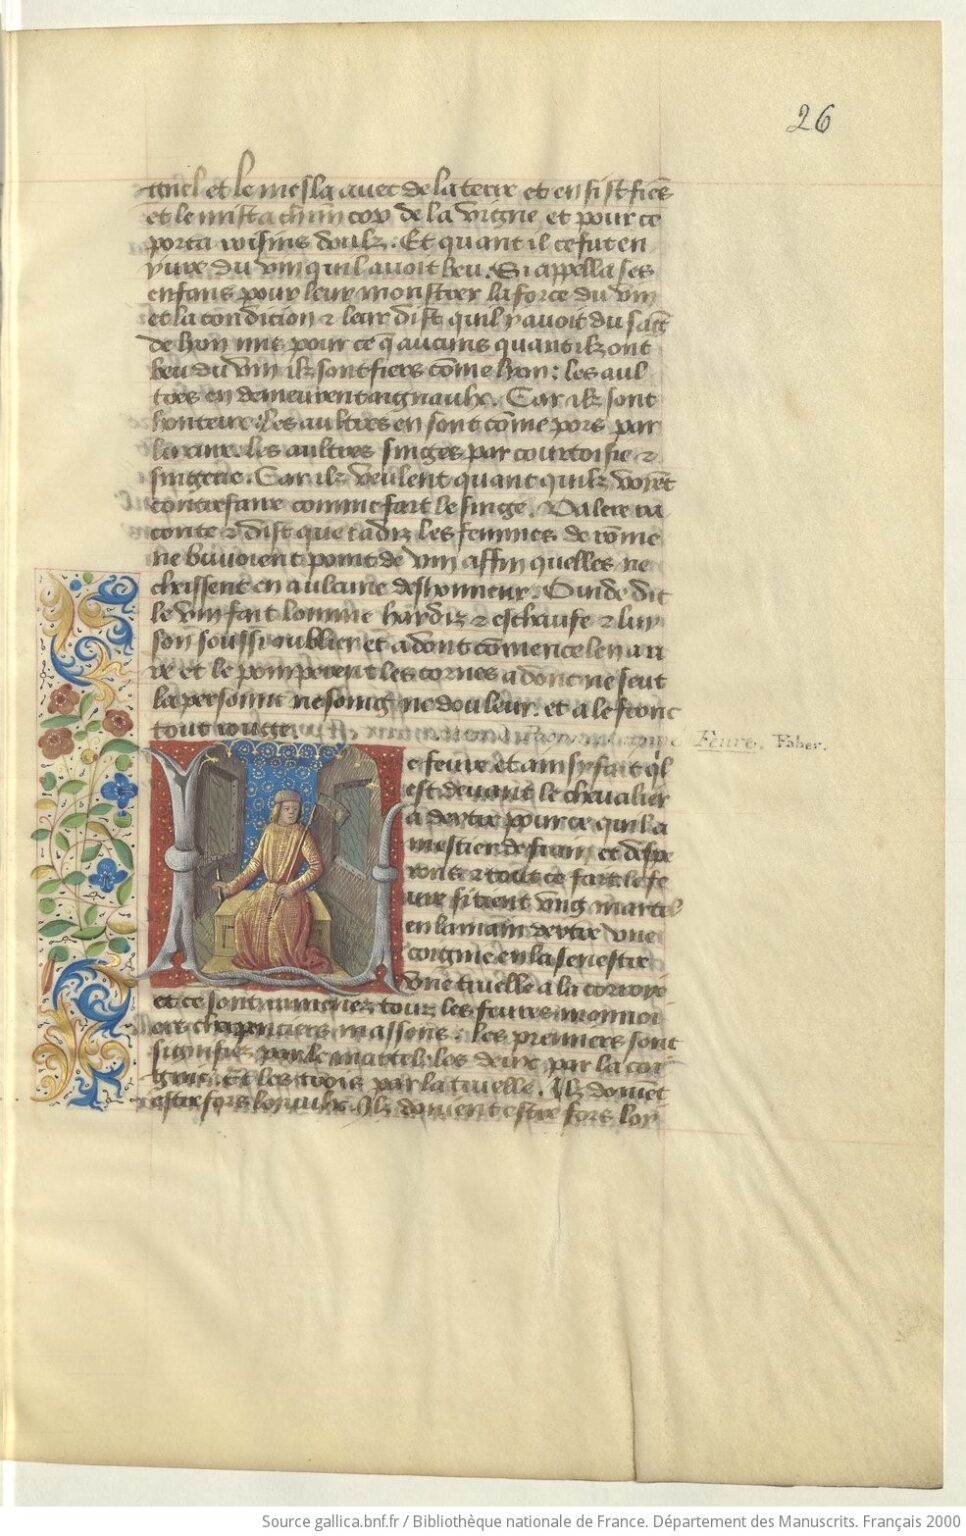 26
et le mesla avec de la terre et en fist fiens
et le mist a chun cop de la vigne et pour ce
porta roisins doulz. Et quant il ce fut en
yure du vin quil auoit beu. Si appella ses
enfans pour leur monstrer la force du vin
et la condicion ⁊ leur dist quil y auoit du sãc
de lyon mis pour ce q̃ aucuns quant ilz ont
beu du vin ilz sont fiers cõme lyon: les aul
tres en demeurent aigneaulx. Car ilz sont
honteux. les aultres en sont cõme pors par
les aultres singes par courtoisie ⁊
singerie. Car ilz veulent quant quilz voyẽt
contrefaire comme fait le singe. Valere ra
conte ⁊ dist que iadiz les femmes de rõme
ne buuoient point de vin affin quelles ne
cheissent en aulcune deshonneur. Ouide dit
le vin fait lomme hardiz ⁊ eschaufe ⁊ luy
son soussi oublier et adont cõmence len a ri
re et le pomperent les cornes adonc ne sent
la personne ne soing ne douleur. et a le fronc
tout rouge.
Feure. Faber.
e feure et ainsy fait ql
est deuant le cheualier
a dextre pour ce quil a
mestier de frain et despe
rons ⁊ tout ce fait le fe
ure si tient vng martel
en la main dextre vne
congnie en la senestre
vne truelle a la corroye
et ce sont nummez tour les feures monnoi
ers charpentiers massons. les premiers sont
signifiez par le martel. les deux par la coi
gnie. Et les trois par la truelle. Ilz doiuẽt
estre fors loyaulx. Ilz doiuent estre fors loy
Source gallica.bnf.fr / Bibliothèque nationale de France. Département des Manuscrits. Français 2000